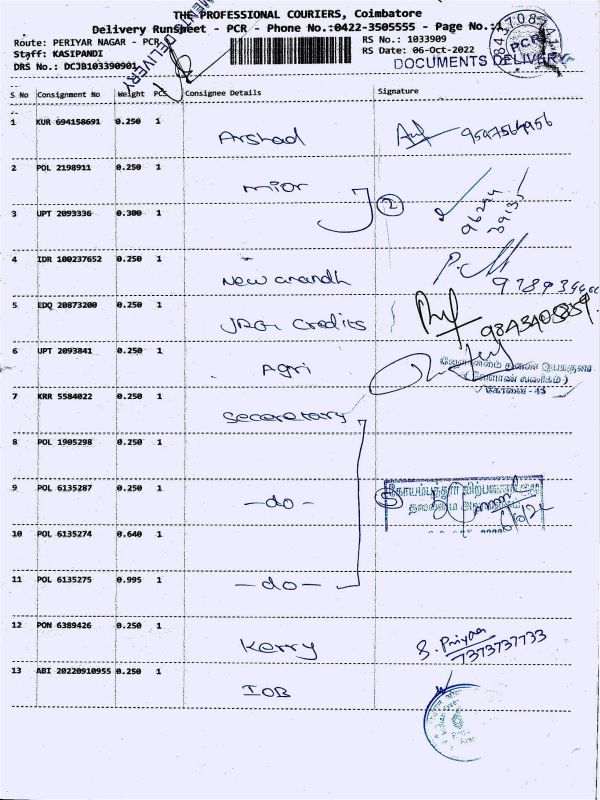 THE PROFESSIONAL COURIERS, Coimbatore
Delivery Runsheet - PCR - Phone No.:0422-3505555 - Page No.:1
Route: PERIYAR NAGAR - PCR
RS No.: 1033909
Staff: KASIPANDI
RS Date: 06-Oct-2022
DRS No.: DCJB103390901
DOCUMENTS DELIVERY
PCR
S No Consignment No Weight PCS Consignee Details Signature
1 KUR 694158691 0.250 1 Arshad
2 POL 2198911 0.250 1 mior
3 UPT 2093336 0.300 1 2
4 IDR 100237652 0.250 1 New anandh
5 EDQ 20873200 0.250 1 JRG Credits 9843405859
6 UPT 2093841 0.250 1 Agri
வேளாண்மை துணை இயக்குநர்
(வேளாண் வணிகம்)
கோவை-43
7 KRR 5584022 0.250 1 Seceretary
8 POL 1905298 0.250 1
9 POL 6135287 0.250 1 -do- 5
10 POL 6135274 0.640 1
11 POL 6135275 0.995 1 -do-
12 PON 6389426 0.250 1 Kerry S. Priyaa
7373737733
13 ABI 20220910955 0.250 1 IOB